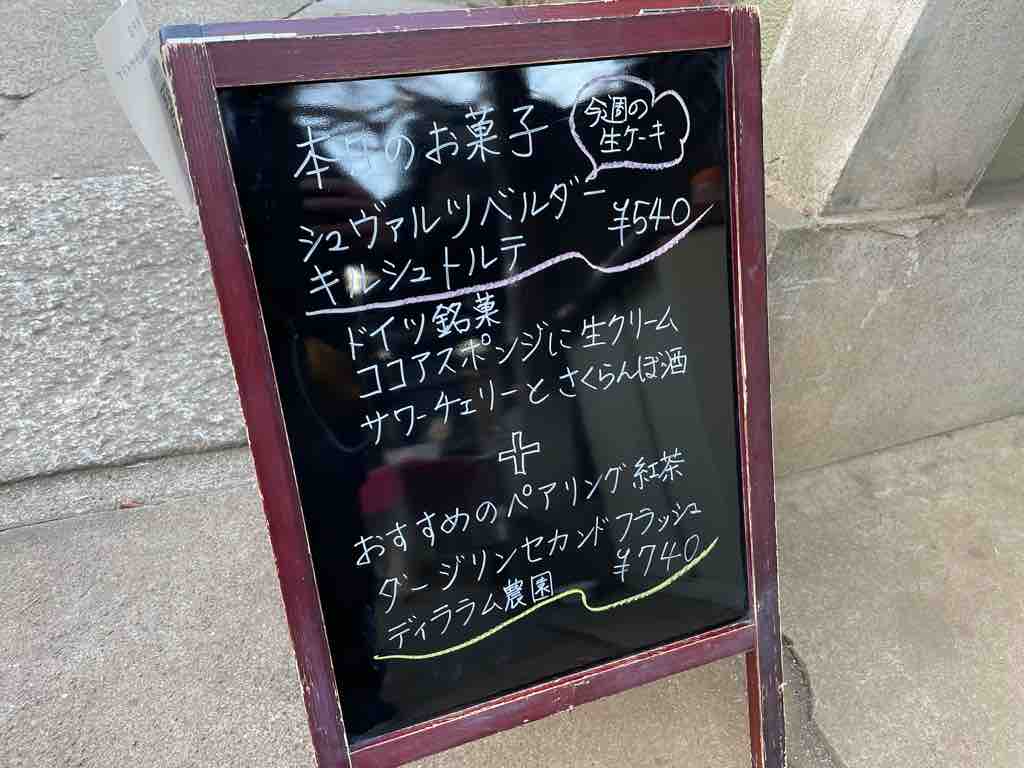 本日のお菓子
今週の
生ケーキ
シュヴァルツベルダー
キルシュトルテ
¥540
ドイツ銘菓
ココアスポンジに生クリーム
サワーチェリーとさくらんぼ酒
+
おすすめのペアリング紅茶
ダージリンセカンドフラッシュ
ディララム農園
¥740